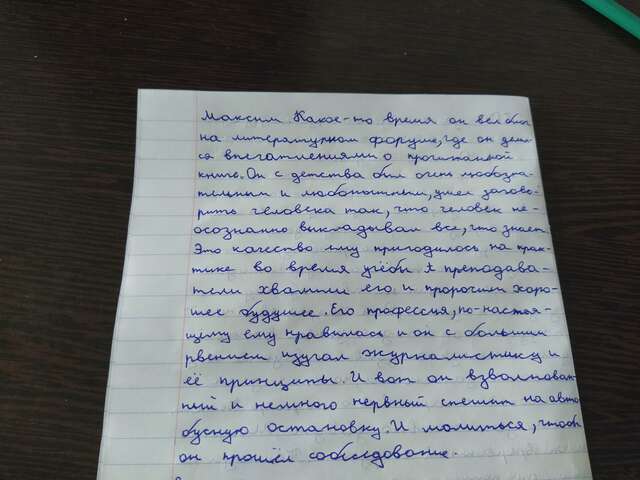 Максим Какое-то время он вёл блог
на литературном форуме, где он делил
ся впечатлениями о прочитанной
книге. Он с детства был очень любозна-
тельным и любопытным, умел загово-
рить человека так, что человек не-
осознанно выкладывал все, что знает.
Это качество ему пригодилось на прак-
тике во время учёбы преподава-
тели хвалили его и пророчили хоро-
шее будущее. Его профессия, по-настоя-
щему ему нравилась и он с большим
рвением изучал журналистику и
её принципы. И вот он взволнован-
ный и немного нервный спешит на авто
бусную остановку. И молиться, чтобы
он прошёл собеседование.